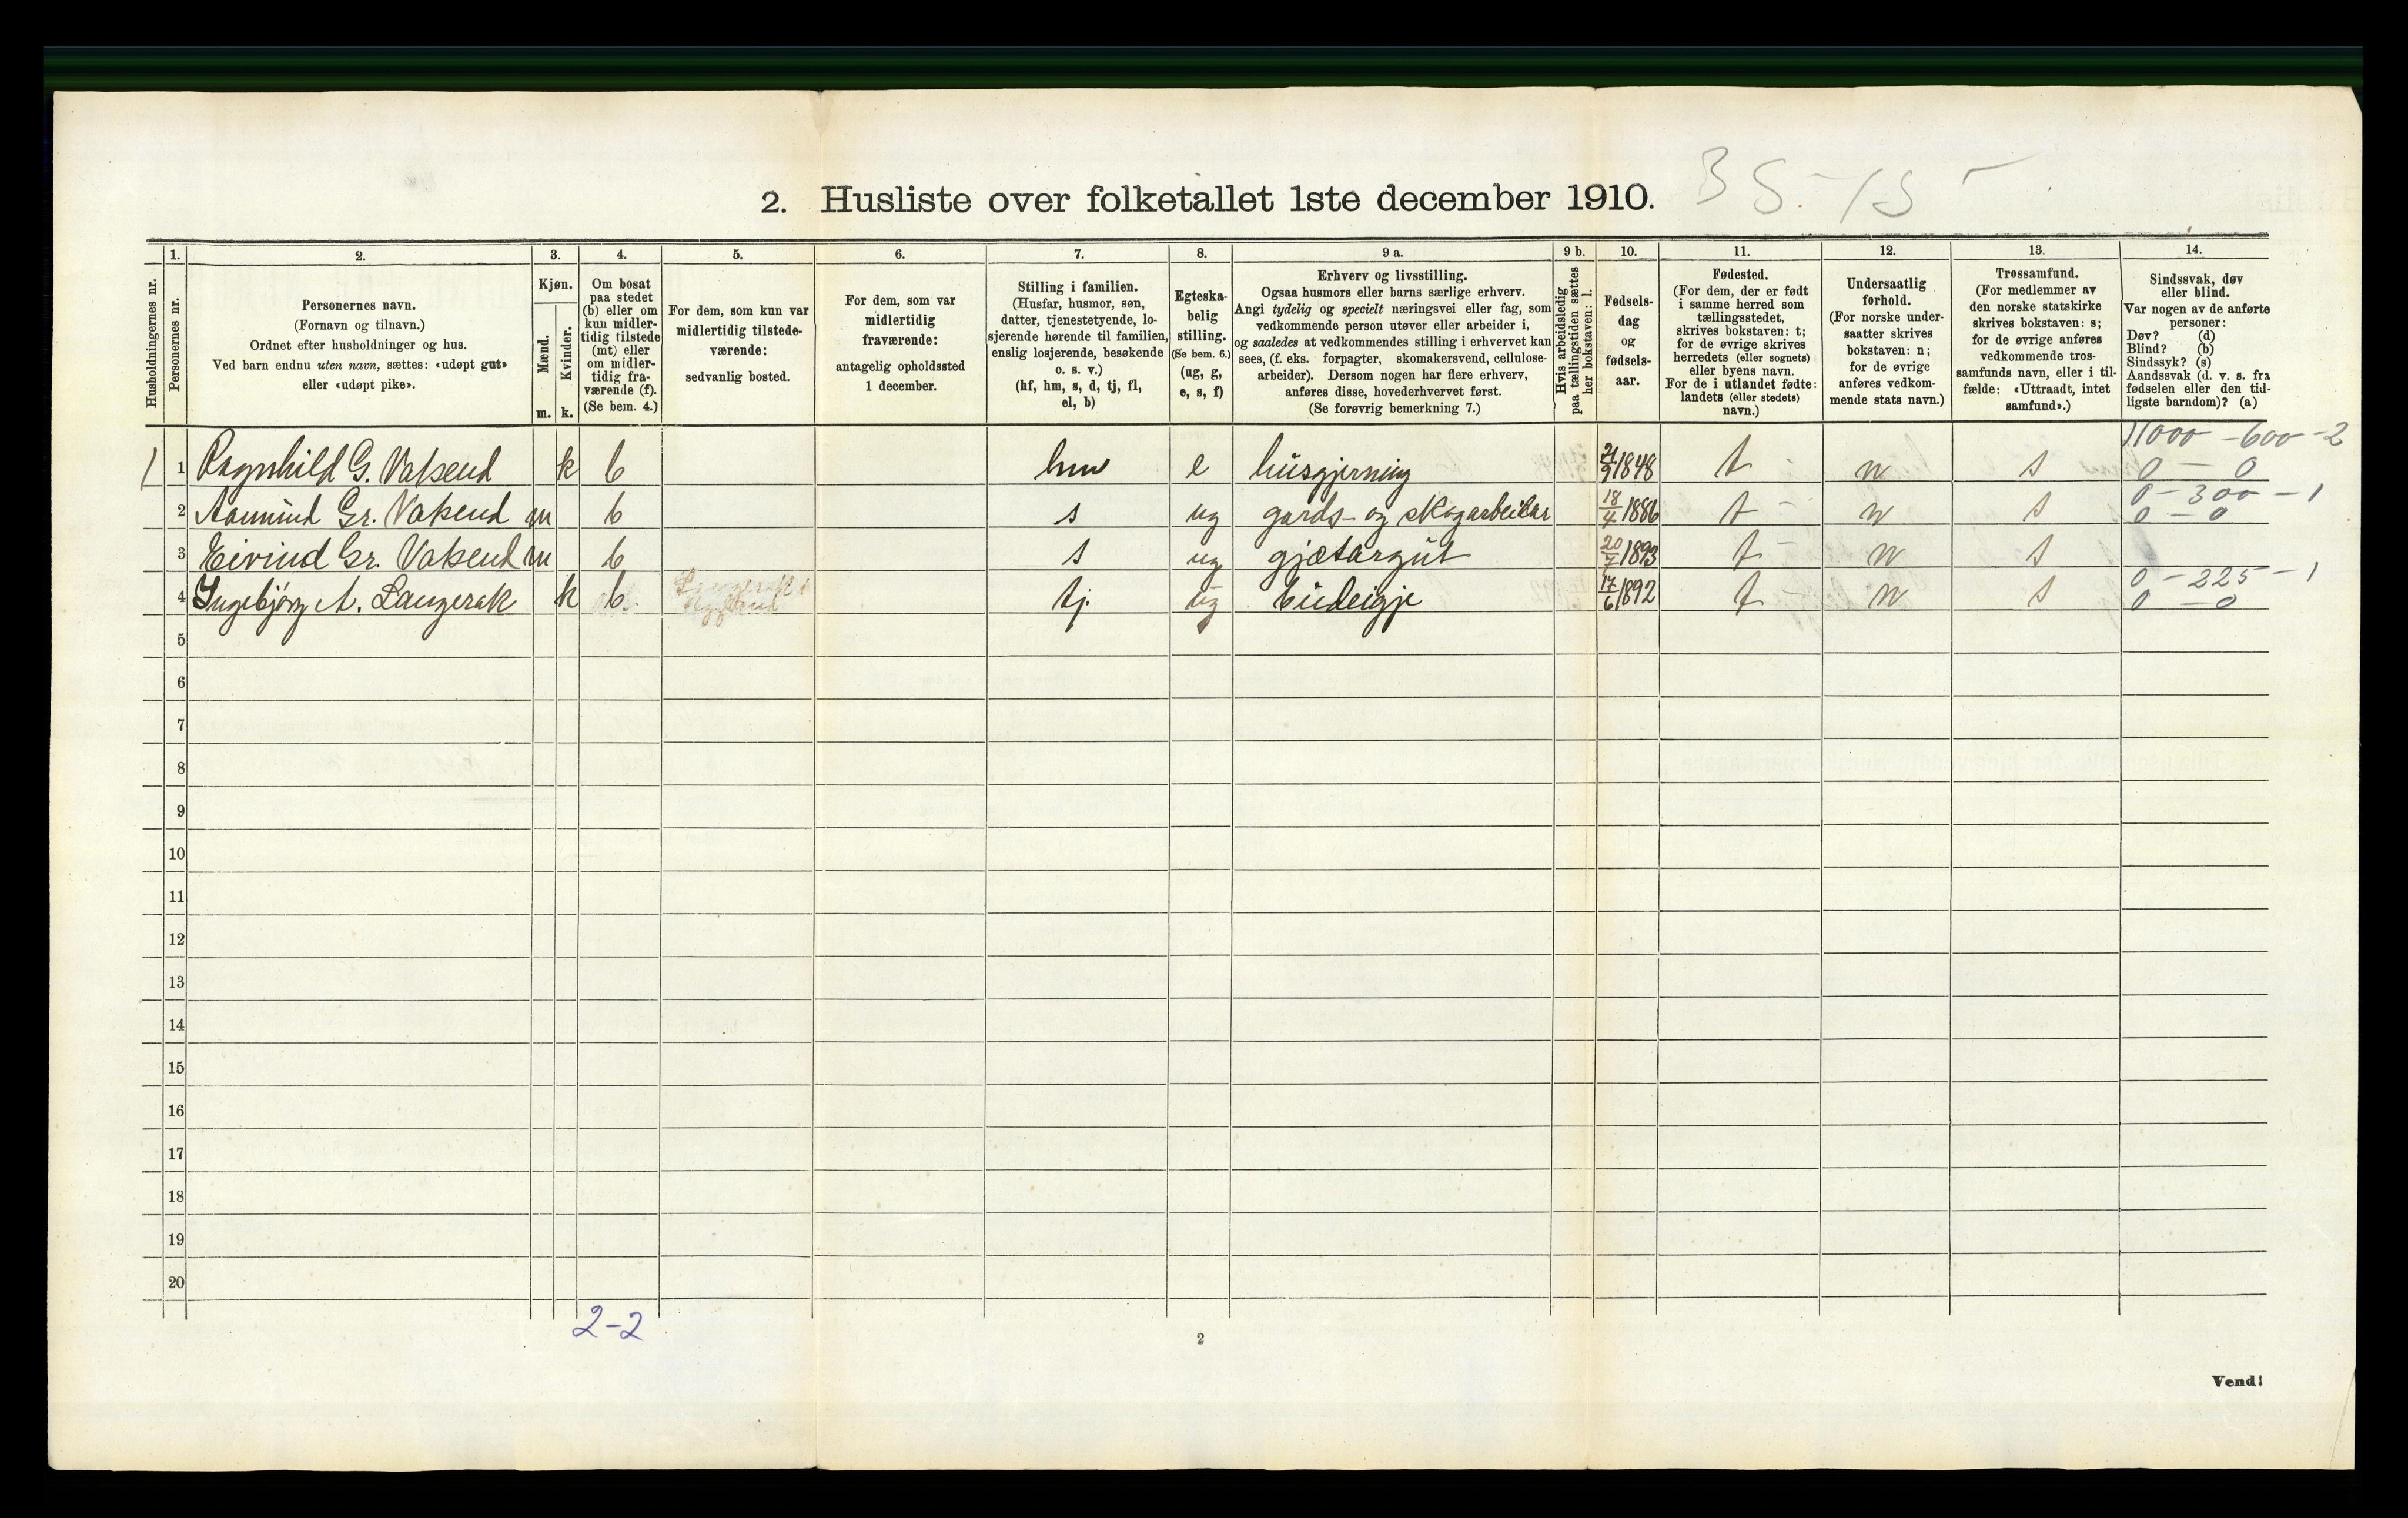 2. Husliste over folketallet 1ste december 1910. 35-15
Husholdningernes nr.
1. Personernes nr.
2. Personernes navn.
(Fornavn og tilnavn.)
Ordnet efter husholdninger og hus.
Ved barn endnu uten navn, sættes: «udøpt gut»
eller «udøpt pike».
3. Kjøn.
Mænd. m.
Kvinder. k.
4. Om bosat
paa stedet
(b) eller om
kun midler-
tidig tilstede
(mt) eller
om midler-
tidig fra-
værende (f).
(Se bem. 4.)
5. For dem, som kun var
midlertidig tilstede-
værende:
sedvanlig bosted.
6. For dem, som var
midlertidig
fraværende:
antagelig opholdssted
1 december.
7. Stilling i familien.
(Husfar, husmor, søn,
datter, tjenestetyende, lo-
sjerende hørende til familien,
enslig losjerende, besøkende
o. s. v.)
(hf, hm, s, d, tj, fl,
el, b)
8. Egteska-
belig
stilling.
(Se bem. 6.)
(ug, g,
e, s, f)
9 a. Erhverv og livsstilling.
Ogsaa husmors eller barns særlige erhverv.
Angi tydelig og specielt næringsvei eller fag, som
vedkommende person utøver eller arbeider i,
og saaledes at vedkommendes stilling i erhvervet kan
sees, (f. eks. forpagter, skomakersvend, cellulose-
arbeider). Dersom nogen har flere erhverv,
anføres disse, hovederhvervet først.
(Se forøvrig bemerkning 7.)
9 b. Hvis arbeidsledig
paa tællingstiden sættes
her bokstaven: l.
10. Fødsels-
dag
og
fødsels-
aar.
11. Fødested.
(For dem, der er født
i samme herred som
tællingsstedet,
skrives bokstaven: t;
for de øvrige skrives
herredets (eller sognets)
eller byens navn.
For de i utlandet fødte:
landets (eller stedets)
navn.)
12. Undersaatlig
forhold.
(For norske under-
saatter skrives
bokstaven: n;
for de øvrige
anføres vedkom-
mende stats navn.)
13. Trossamfund.
(For medlemmer av
den norske statskirke
skrives bokstaven: s;
for de øvrige anføres
vedkommende tros-
samfunds navn, eller i til-
fælde: «Uttraadt, intet
samfund».)
14. Sindssvak, døv
eller blind.
Var nogen av de anførte
personer:
Døv? (d)
Blind? (b)
Sindssyk? (s)
Aandssvak (d. v. s. fra
fødselen eller den tid-
ligste barndom)? (a)
11000 - 600 - 2
1 1 Ragnhild G. Vaksend k b hm e husgjerning 21/9 1848 t n s 0 - 0
0 - 300 - 1
2 Aamund Gr. Vaksend m b s ug gards- og skogarbeidar 18/4 1886 t n s 0 - 0
3 Eivind Gr. Vaksend m b s ug gjætargut 20/7 1893 t n s
0 - 225 - 1
4 Ingebjørg A. Langerak k b tj. ug budeigje 17/6 1892 t n s 0 - 0
5
6
7
8
9
10
11
12
13
14
15
16
17
18
19
20
2-2
2
Vend!